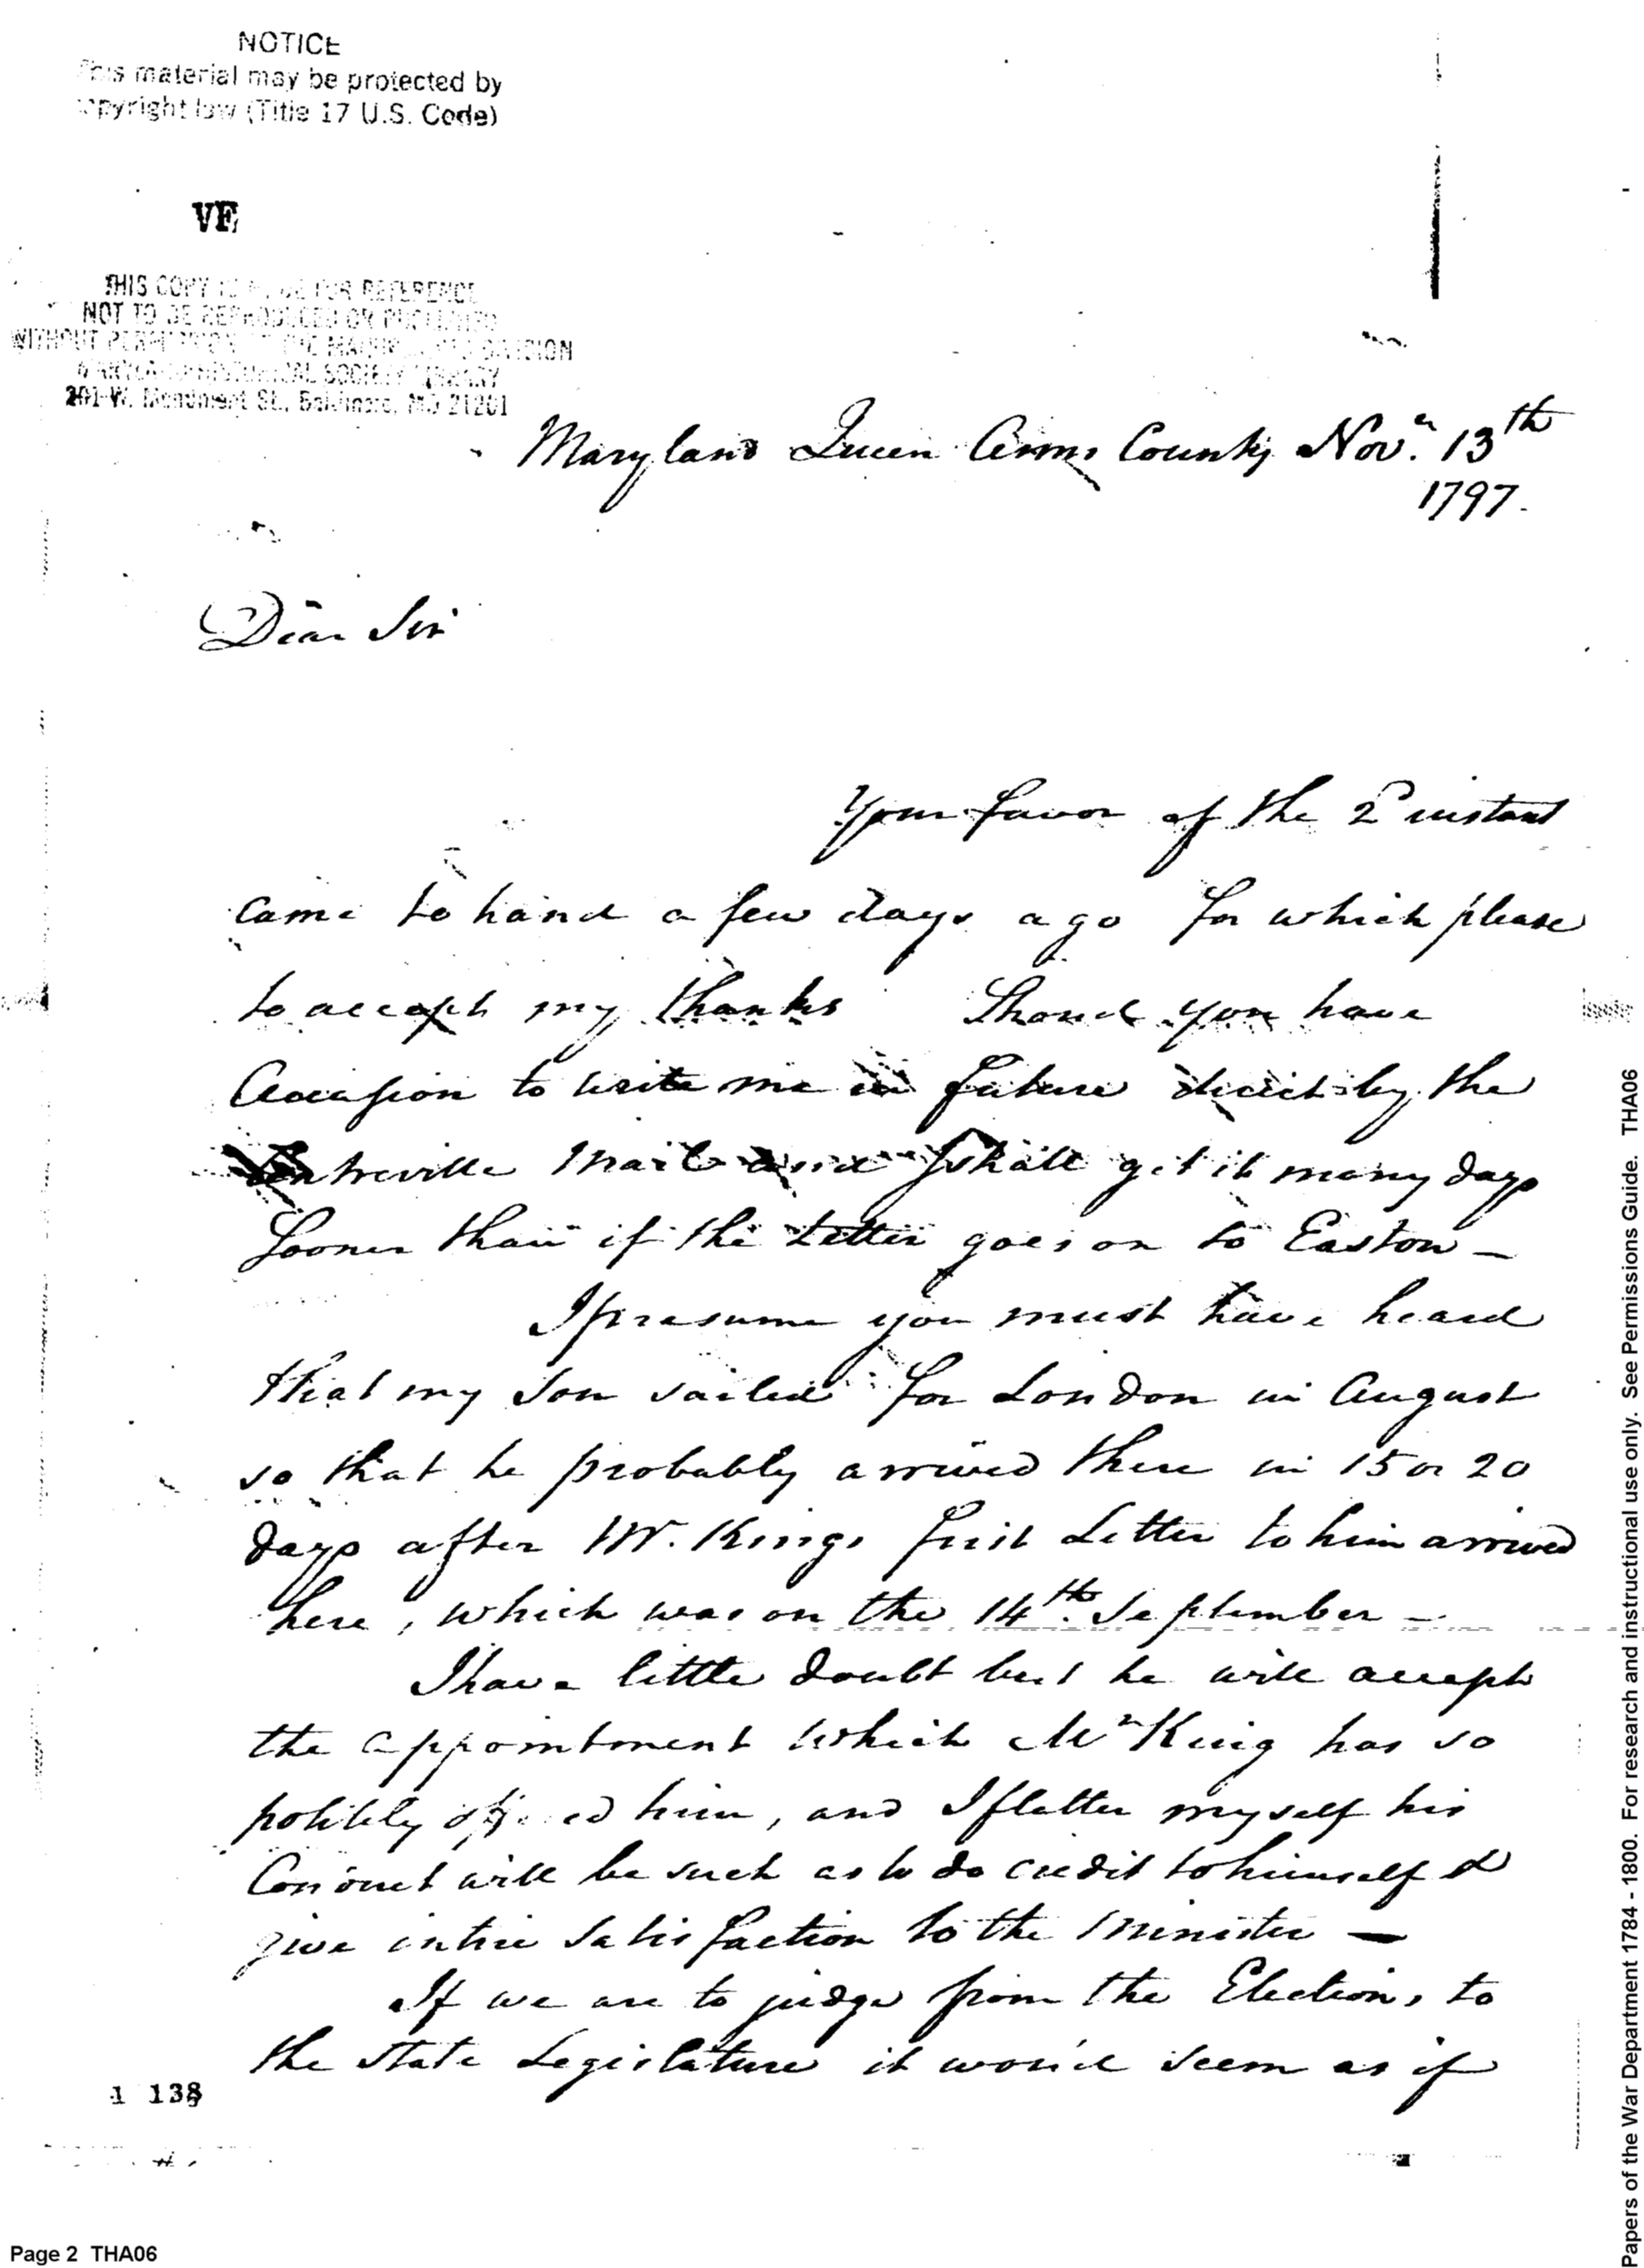 NOTICE
This material may be protected by
copyright law (Title 17 U.S. Code)
VF
THIS COPY IS MADE FOR REFERENCE
NOT TO BE REPRODUCED OR
WITHOUT PERMISSION OF THE MANUSCRIPTS DIVISION
MARYLAND HISTORICAL SOCIETY LIBRARY
201 W. Monument St., Baltimore, MD 21201
Maryland Queen Anns County Novr. 13th
1797.
Dear Sir
Your favor of the 2d instant
came to hand a few days ago for which please
to accept my thanks Shoud you have
Occasion to write me in future direct by the
Centreville Mail and I shall get it many days
Sooner than if the Letter goes on to Easton —
I presume you must have heard
that my Son sailed for London in August
so that he probably arrived there in 15 or 20
days after Mr. Kings first Letter to him arrived
here, which was on the 14th. September —
I have little doubt but he will accept
the appointment which Mr King has so
politely offered him, and I flatter myself his
Conduct will be such as to do credit to himself &
give intire Satisfaction to the Minister —
If we are to judge from the Elections to
the State Legislature it would seem as if
1 138
Page 2 THA06
Papers of the War Department 1784 - 1800. For research and instructional use only. See Permissions Guide. THA06